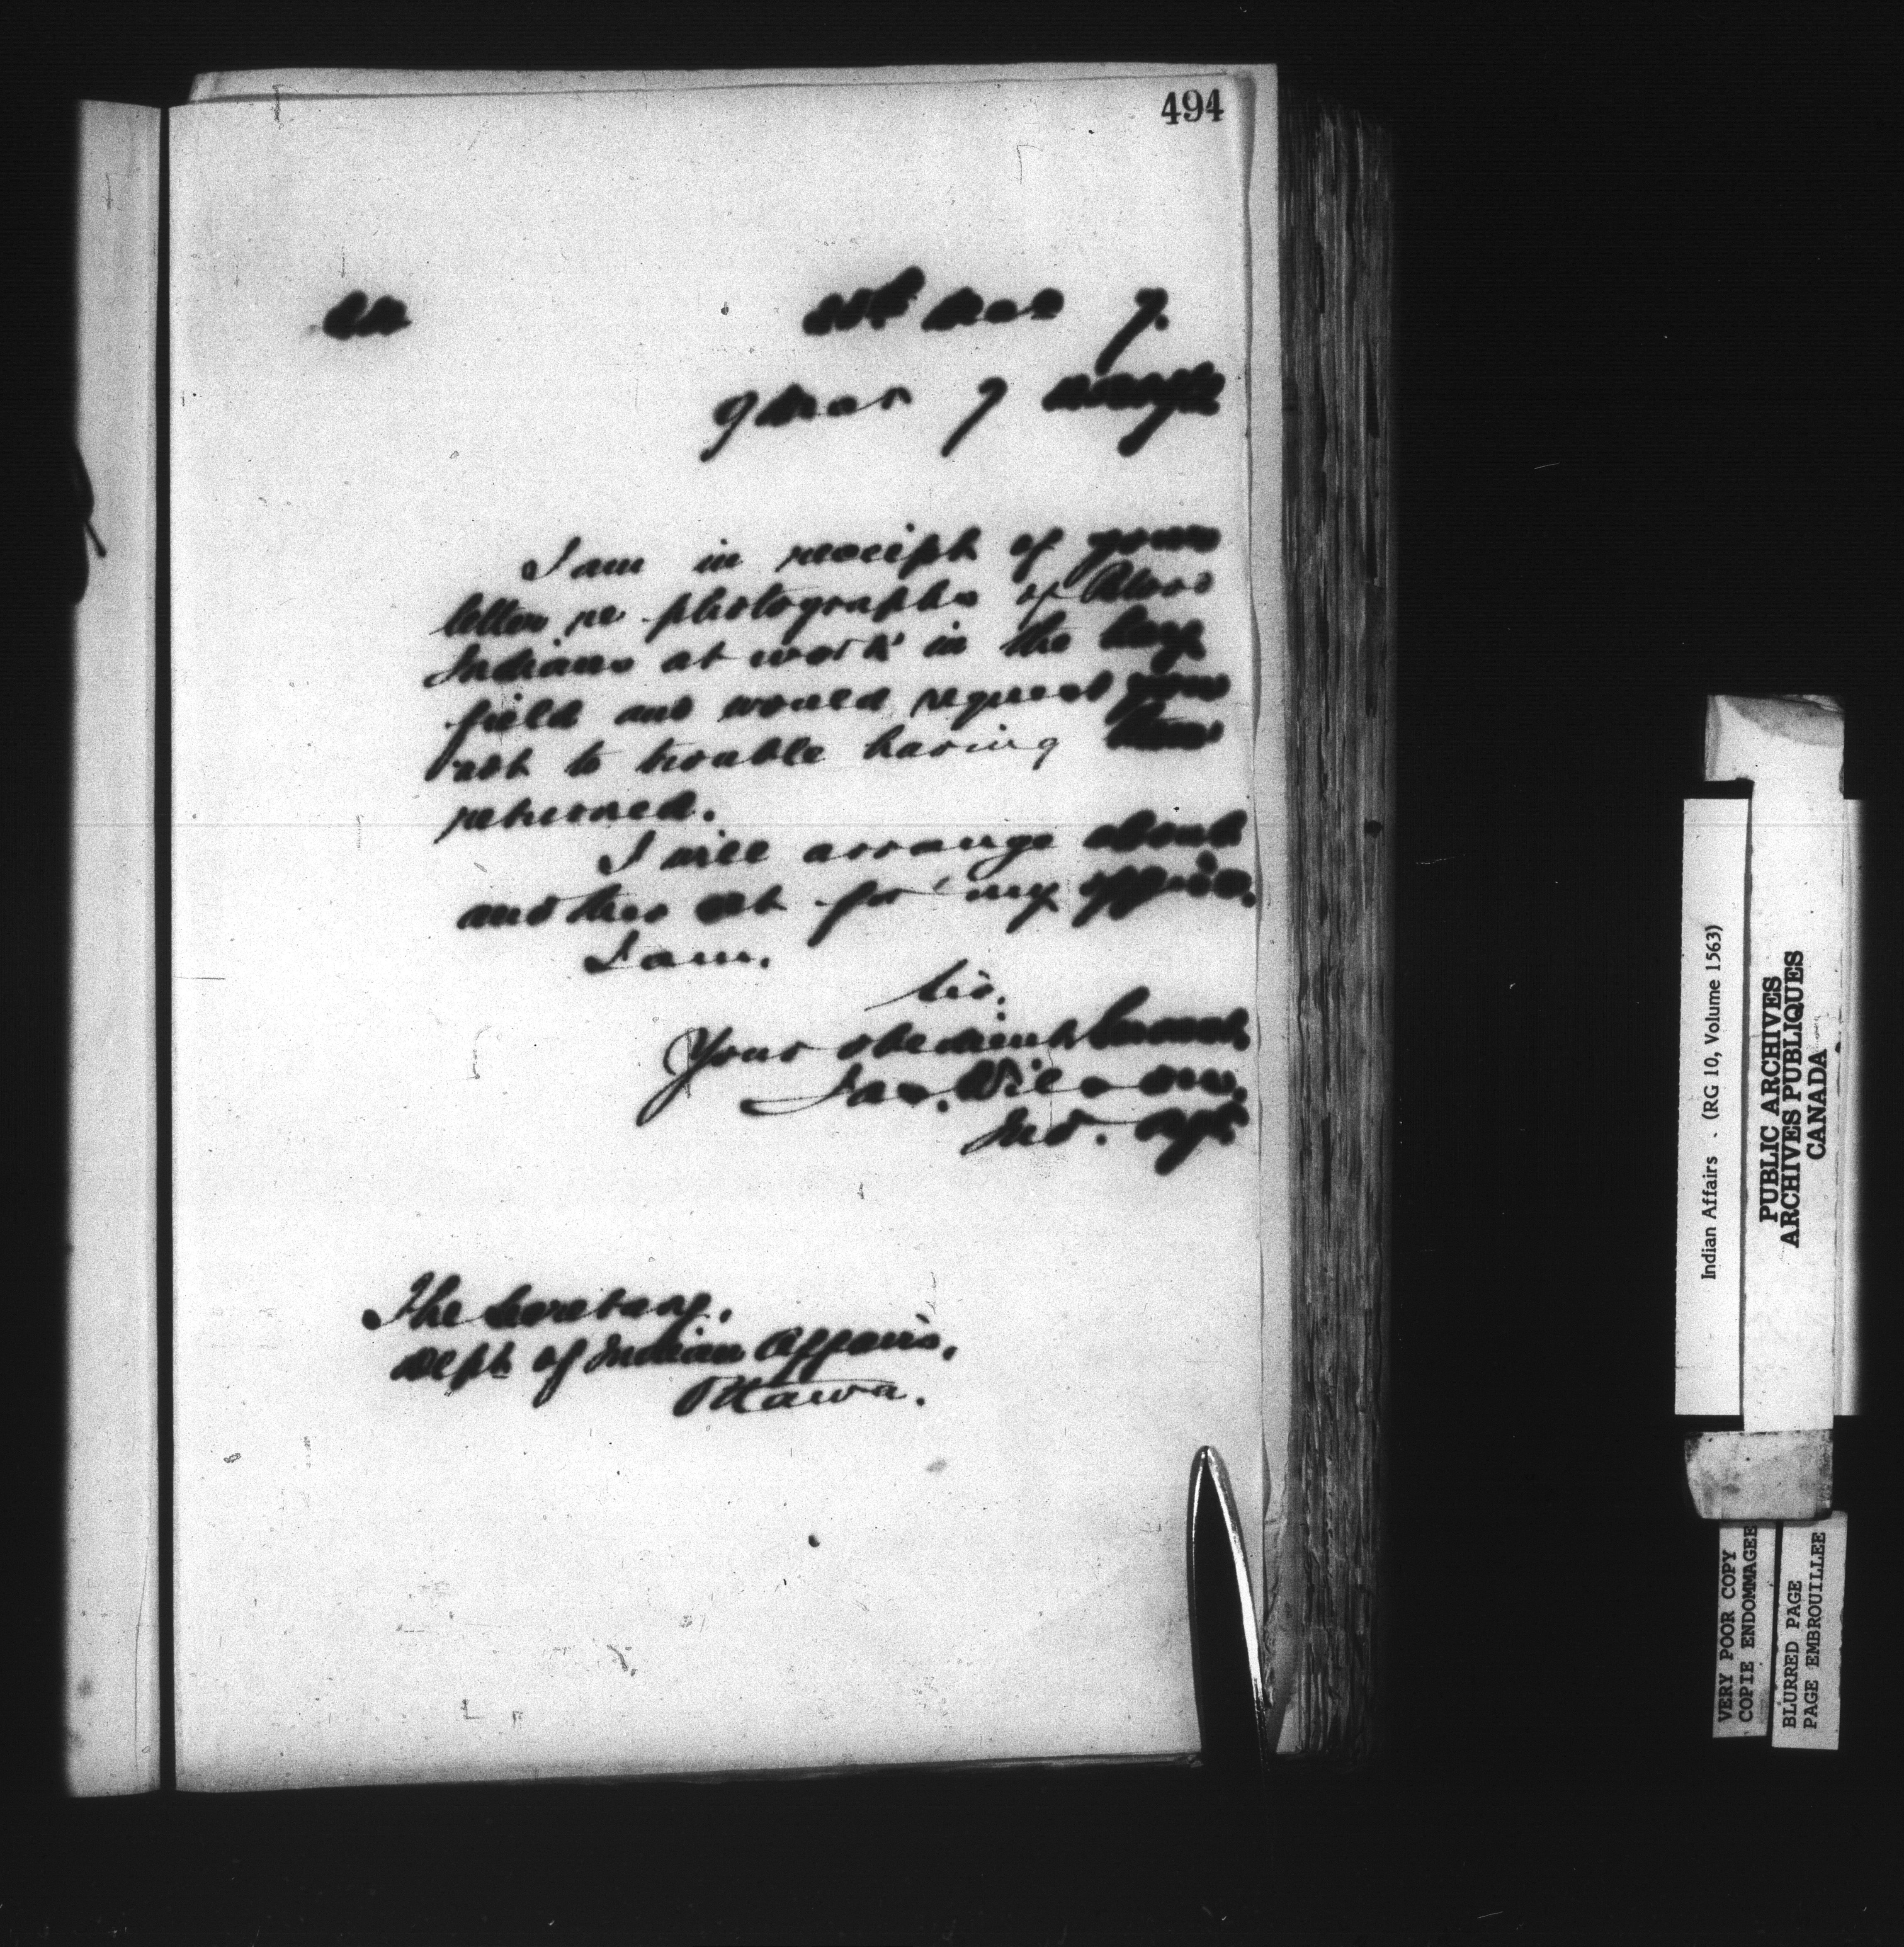 494
Mar 7.
9 Mar 7
I am in receipt of your
letter re photographs of Blood
Indians at work in the hay
field and would request you
not to trouble having them
returned.
I will arrange about
another set for my office.
I am,
Sir,
Your obedient Servant,
Jas. Wilson.
Ind. Agt.
The Secretary,
Dept of Indian Affairs,
Ottawa.
Indian Affairs . (RG 10, Volume 1563)
PUBLIC ARCHIVES
ARCHIVES PUBLIQUES
CANADA
VERY POOR COPY
COPIE ENDOMMAGEE
BLURRED PAGE
PAGE EMBROUILLEE